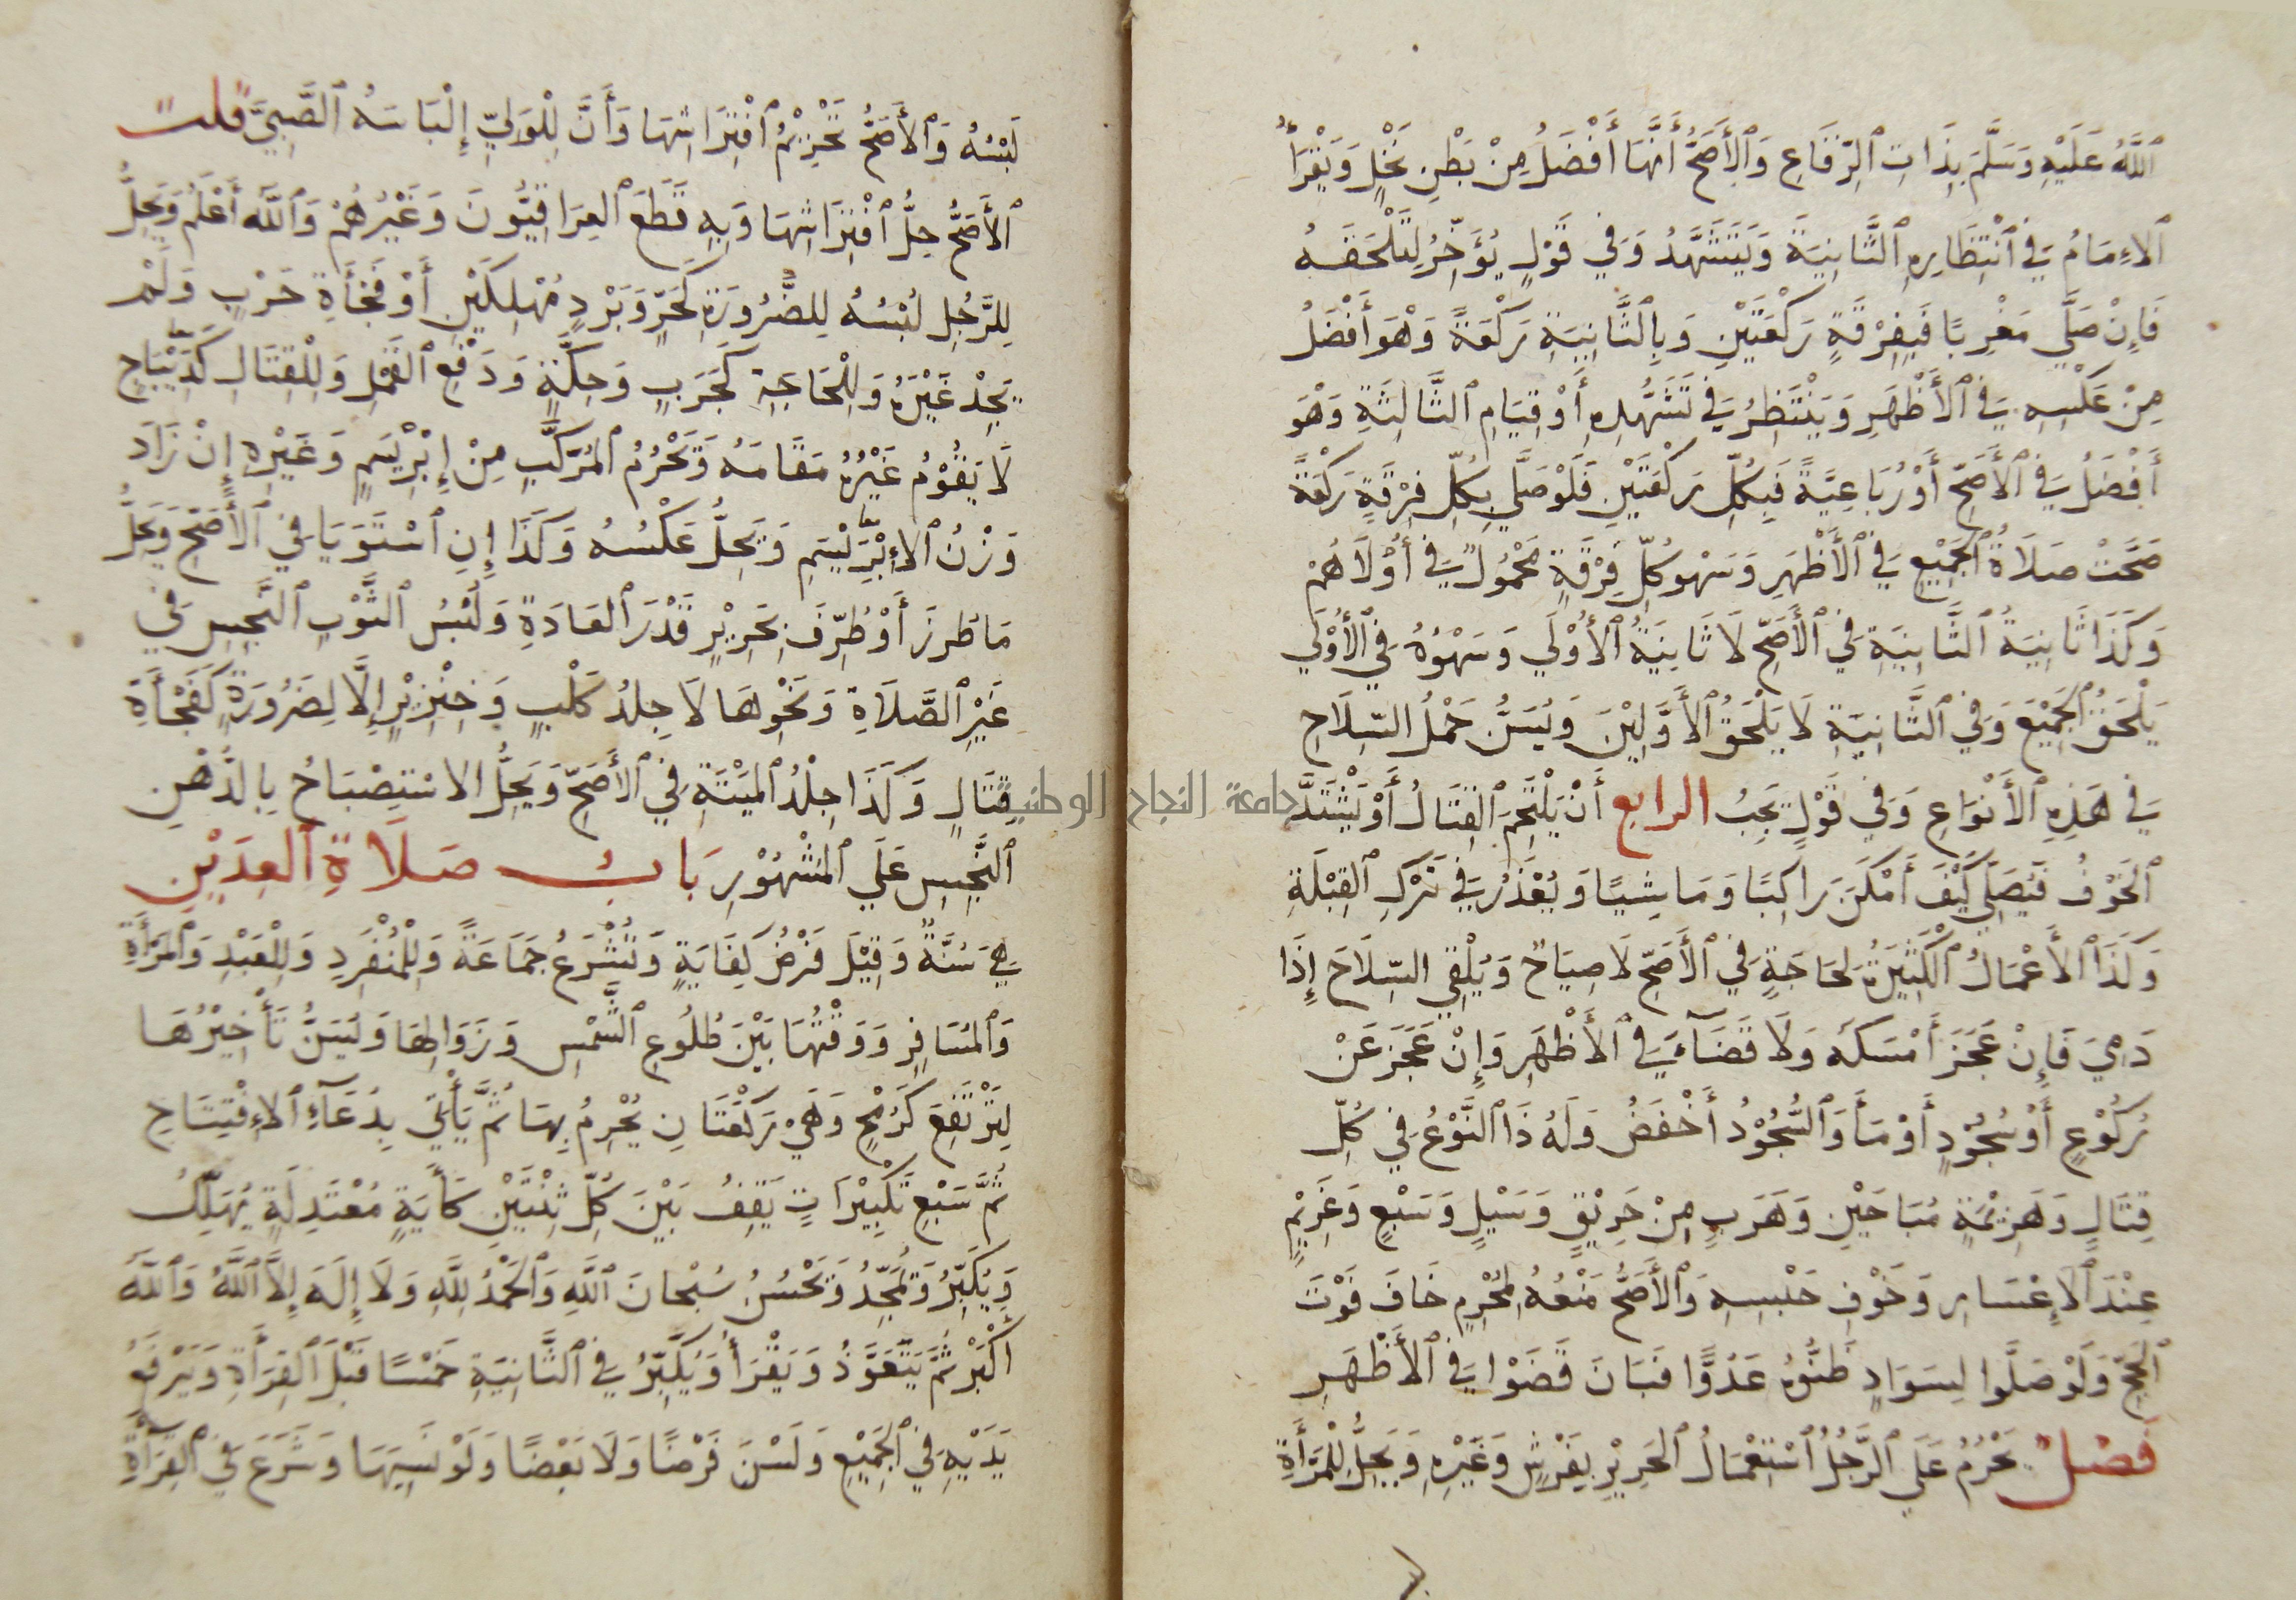 ٱللَّهُ عَلَيْهِ وَسَلَّمَ بِذَاتِ ٱلرِّقَاعِ وَٱلْأَصَحُّ أَنَّهَا أَفْضَلُ مِنْ بَطْنِ نَخْلٍ وَيَقْرَأُ
ٱلْإِمَامُ فِي ٱنْتِظَارِهِ ٱلثَّانِيَةَ وَيَتَشَهَّدُ وَفِي قَوْلٍ يُؤَخِّرُ لِتَلْحَقَهُ
فَإِنْ صَلَّى مَغْرِبًا فَبِفِرْقَةٍ رَكْعَتَيْنِ وَبِالثَّانِيَةِ رَكْعَةً وَهْوَ أَفْضَلُ
مِنْ عَكْسِهِ فِي ٱلْأَظْهَرِ وَيَنْتَظِرُ فِي تَشَهُّدِهِ أَوْ قِيَامِ ٱلثَّالِثَةِ وَهْوَ
أَفْضَلُ فِي ٱلْأَصَحِّ أَوْ رُبَاعِيَّةً فَبِكُلِّ رَكْعَتَيْنِ فَلَوْ صَلَّى بِكُلِّ فِرْقَةٍ رَكْعَةً
صَحَّتْ صَلَاةُ ٱلْجَمِيْعِ فِي ٱلْأَظْهَرِ وَسَهْوُ كُلِّ فِرْقَةٍ مَحْمُولٌ فِي أُوْلَاهُمْ
وَكَذَا ثَانِيَةُ ٱلثَّانِيَةِ فِي ٱلْأَصَحِّ لَا ثَانِيَةُ ٱلْأُوْلَى وَسَهْوُهُ فِي ٱلْأُوْلَى
يَلْحَقُ ٱلْجَمِيْعَ وَفِي ٱلثَّانِيَةِ لَا يَلْحَقُ ٱلْأَوَّلِيْنَ وَيُسَنُّ حَمْلُ السِّلَاحِ
فِي هَذِهِ ٱلْأَنْوَاعِ وَفِي قَوْلٍ يَجِبُ الرابع أَنْ يَلْتَحِمَ ٱلْقِتَالُ أَوْ يَشْتَدَّ
ٱلْخَوْفُ فَيُصَلِّي كَيْفَ أَمْكَنَ رَاكِبًا وَمَاشِيًا وَيُعْذَرُ فِي تَرْكِ ٱلْقِبْلَةِ
وَكَذَا ٱلْأَعْمَالُ ٱلْكَثِيْرَةُ لِحَاجَةٍ فِي ٱلْأَصَحِّ لَا صِيَاحٌ وَيُلْقِي السِّلَاحَ إِذَا
دَمِيَ فَإِنْ عَجَزَ أَمْسَكَهُ وَلَا قَضَآءَ فِي ٱلْأَظْهَرِ وَإِنْ عَجَزَ عَنْ
رُكُوْعٍ أَوْ سُجُوْدٍ أَوْمَأَ وَٱلسُّجُوْدُ أَخْفَضُ وَلَهُ ذَا ٱلنَّوْعُ فِي كُلِّ
قِتَالٍ وَهَزِيْمَةٍ مُبَاحَيْنِ وَهَرَبٍ مِنْ حَرِيْقٍ وَسَيْلٍ وَسَبْعٍ وَغَرِيْمٍ
عِنْدَ ٱلْإِعْسَارِ وَخَوْفِ حَبْسِهِ وَٱلْأَصَحُّ مَنْعُهُ لِمُحْرِمٍ خَافَ فَوْتَ
ٱلْحَجِّ وَلَوْ صَلَّوا لِسَوَادٍ ظَنُّوهُ عَدُوًّا فَبَانَ قَضَوْا فِي ٱلْأَظْهَرِ
فصْلٌ يَحْرُمُ عَلَى ٱلرَّجُلُ ٱسْتِعْمَالُ ٱلْحَرِيْرِ بِفَرْشٍ وَغَيْرِهِ وَيَحِلُّ لِلْمَرْأَةِ
لُبْسُهُ وَٱلْأَصَحُّ تَحْرِيْمُ ٱفْتِرَاشِهَا وَأَنَّ لِلْوَلِيِّ إِلْبَاسَهُ ٱلصَّبِيَّ قلت
ٱلْأَصَحُّ حِلُّ ٱفْتِرَاشِهَا وَبِهِ قَطَعَ ٱلْعِرَاقِيُّونَ وَغَيْرُهُمْ وَٱللَّهُ أَعْلَمُ وَيَحِلُّ
لِلرَّجُلِ لُبْسُهُ لِلضَّرُورَةِ كَحَرٍّ وَبَرْدٍ مُهْلِكَيْنِ أَوْ فَجْأَةِ حَرْبٍ وَلَمْ
يَجِدْ غَيْرَهُ وَلِلْحَاجَةِ كَجَرَبٍ وَحِكَّةٍ وَدَفْعِ ٱلْقَمْلِ وَلِلْقِتَالِ كَدِيْبَاجٍ
لَا يَقُوْمُ غَيْرُهُ مَقَامَهُ وَتَحْرُمُ ٱلْمُرَكَّبِ مِنْ إِبْرِيْسَمٍ وَغَيْرِهِ إِنْ زَادَ
وَزْنُ ٱلْإِبْرَيْسَمِ وَيَحِلُّ عَكْسُهُ وَكَذَا إِنِ ٱسْتَوَيَا فِي ٱلْأَصَحِّ وَيَحِلُّ
مَا طُرِزَ أَوْ طُرِّفَ بِحَرِيْرٍ قَدْرَ ٱلْعَادَةِ وَلُبْسُ ٱلثَّوْبِ ٱلنَّجِسِ فِي
غَيْرِ ٱلصَّلَاةِ وَنَحْوِهَا لَا جِلدُ كَلْبٍ وَخِنْزِيْرٍ إِلَّا لِضَرُورَةٍ كَفَجْأَةِ
قِتَالٍ وَكَذَا جِلْدُ ٱلْمَيْتَةِ فِي ٱلْأَصَحِّ وَيَحِلُّ الاسْتِصْبَاحُ بِالدُّهْنِ
ٱلنَّجِسِ عَلَى ٱلْمَشْهُوْرِ بَابُ صَلَاةِ ٱلْعِدَيْنِ
هِيَ سُنَّةٌ وَقِيْلَ فَرْضُ كِفَايَةٍ وَتُشْرَعُ جَمَاعَةً وَلِلْمُنْفَرِدِ وَلِلْعَبْدِ وَٱلْمَرْأَةِ
وَٱلْمُسَافِرِ وَوَقْتُهَا بَيْنَ طُلُوعِ ٱلشَّمْسِ وَزَوَالِهَا وَيُسَنُّ تَأْخِيْرُهَا
لِتَرْتَفِعَ كَرُمْحٍ وَهْيَ رَكْعَتَانِ يُحْرِمُ بِهَا ثُمَّ يَأْتِي بِدُعَآءِ ٱلْإِفْتِتَاحِ
ثُمَّ سَبْعِ تَكْبِيْرَاتٍ يَقِفُ بَيْنَ كُلِّ ثِنْتَيْنِ كَأَيَةٍ مُعْتَدِلَةٍ يُهَلِّلُ
وَيُكَبِّرُ وَيُمَجِّدُ وَيَحْسُنُ سُبْحَانَ ٱللَّهِ وَٱلْحَمْدُ لِلَّهِ وَلَا إِلَهَ إِلَّا ٱللَّهُ وَٱللَّهُ
أَكْبَرُ ثُمَّ يَتَعَوَّذُ وَيَقْرَأُ وَيُكَبِّرُ فِي ٱلثَّانِيَةِ خَمْسًا قَبْلَ ٱلْقِرَأَةِ وَيَرْفَعُ
يَدَيْهِ فِي ٱلْجَمِيْعِ وَلَسْنَ فَرْضًا وَلَا بَعْضًا وَلَوْ نَسِيَهَا وَشَرَعَ فِي ٱلْقِرَأَةِ
جامعة النجاح الوطنية